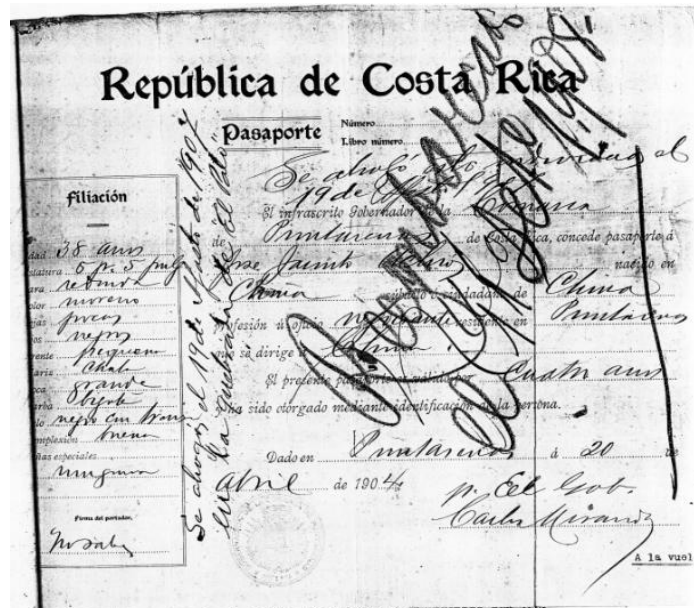 República de Costa Rica
Pasaporte
Número
Libro número
Se ahogó este individuo el
19 de Agosto 1907
El infrascrito Gobernador de la Comarca
de Puntarenas de Costa Rica, concede pasaporte á
José Jacinto nacido en
China súbdito ó ciudadano de China
profesión ú oficio negociante residente en Puntarenas
que se dirige á China
El presente pasaporte es válido por Cuatro años
y ha sido otorgado mediante identificación de la persona.
Dado en Puntarenas á 20 de
abril de 1904
p. El Gob.
Carlos Miranda
A la vuel
Filiación
38 años
5 p. 5 pulg
redonda
color moreno
pocas
negros
pequeña
chata
grande
bigote
negro con trenza
complexión buena
especiales
ninguna
Firma del portador,
No sabe
Se ahogó el 19 de Agosto de 1907
en la quebrada de "El Palo"
Puntarenas
1908